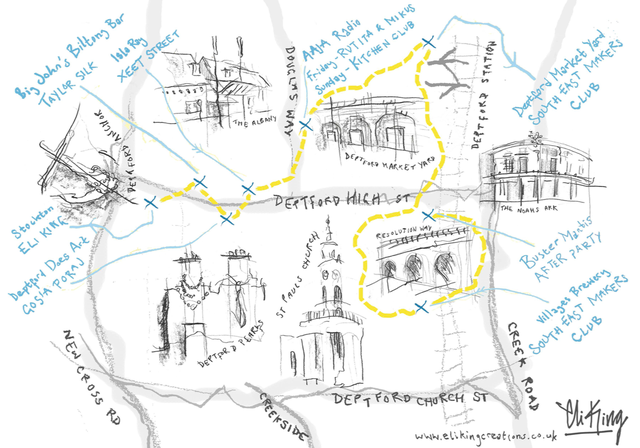 Big John's Biltong Bar
TAYLOR SILK
Lolo Roy
XEET STREET
THE ALBANY
DOUGLAS WAY
AAJA Radio
Friday - RUTITA & MIKUS
Sunday - KITCHEN CLUB
DEPTFORD STATION
Deptford Market Yard
SOUTH EAST MAKERS
CLUB
DEPTFORD ANCHOR
DEPTFORD MARKET YARD
THE NOAHS ARK
DEPTFORD HIGH ST
Stockton
ELI KING
Deptford Does Art
GOSIA PORAJ
DEPTFORD PEARKS
ST PAULS CHURCH
RESOLUTION WAY
Buster Mantis
AFTER PARTY
Villages Brewery
SOUTH EAST MAKERS
CLUB
NEW CROSS RD
CREEKSIDE
DEPTFORD CHURCH ST
CREEK ROAD
Eli King
www.elikingcreations.co.uk